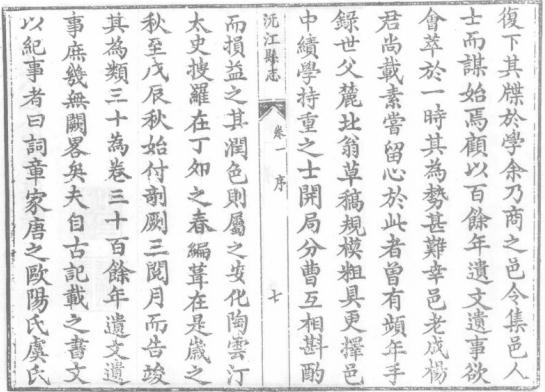 復下其牒於學余乃商之邑令集邑人
士而謀始焉顧以百餘年遺文遺事欲
會萃於一時其為勢甚難幸邑老成楊
君尚載素嘗留心於此者曾有頻年手
録世父麓北翁草稿規模粗具更擇邑
中績學持重之士開局分曹互相斟酌
沅江縣志
卷一
序
七
而損益之其潤色則屬之安化陶雲汀
太史搜羅在丁卯之春編葺在是歲之
秋至戊辰秋始付剞劂三閱月而告竣
其為類三十為卷三十百餘年遺文遺
事庶幾無闕畧矣夫自古記載之書文
以紀事者曰詞章家唐之歐陽氏虞氏